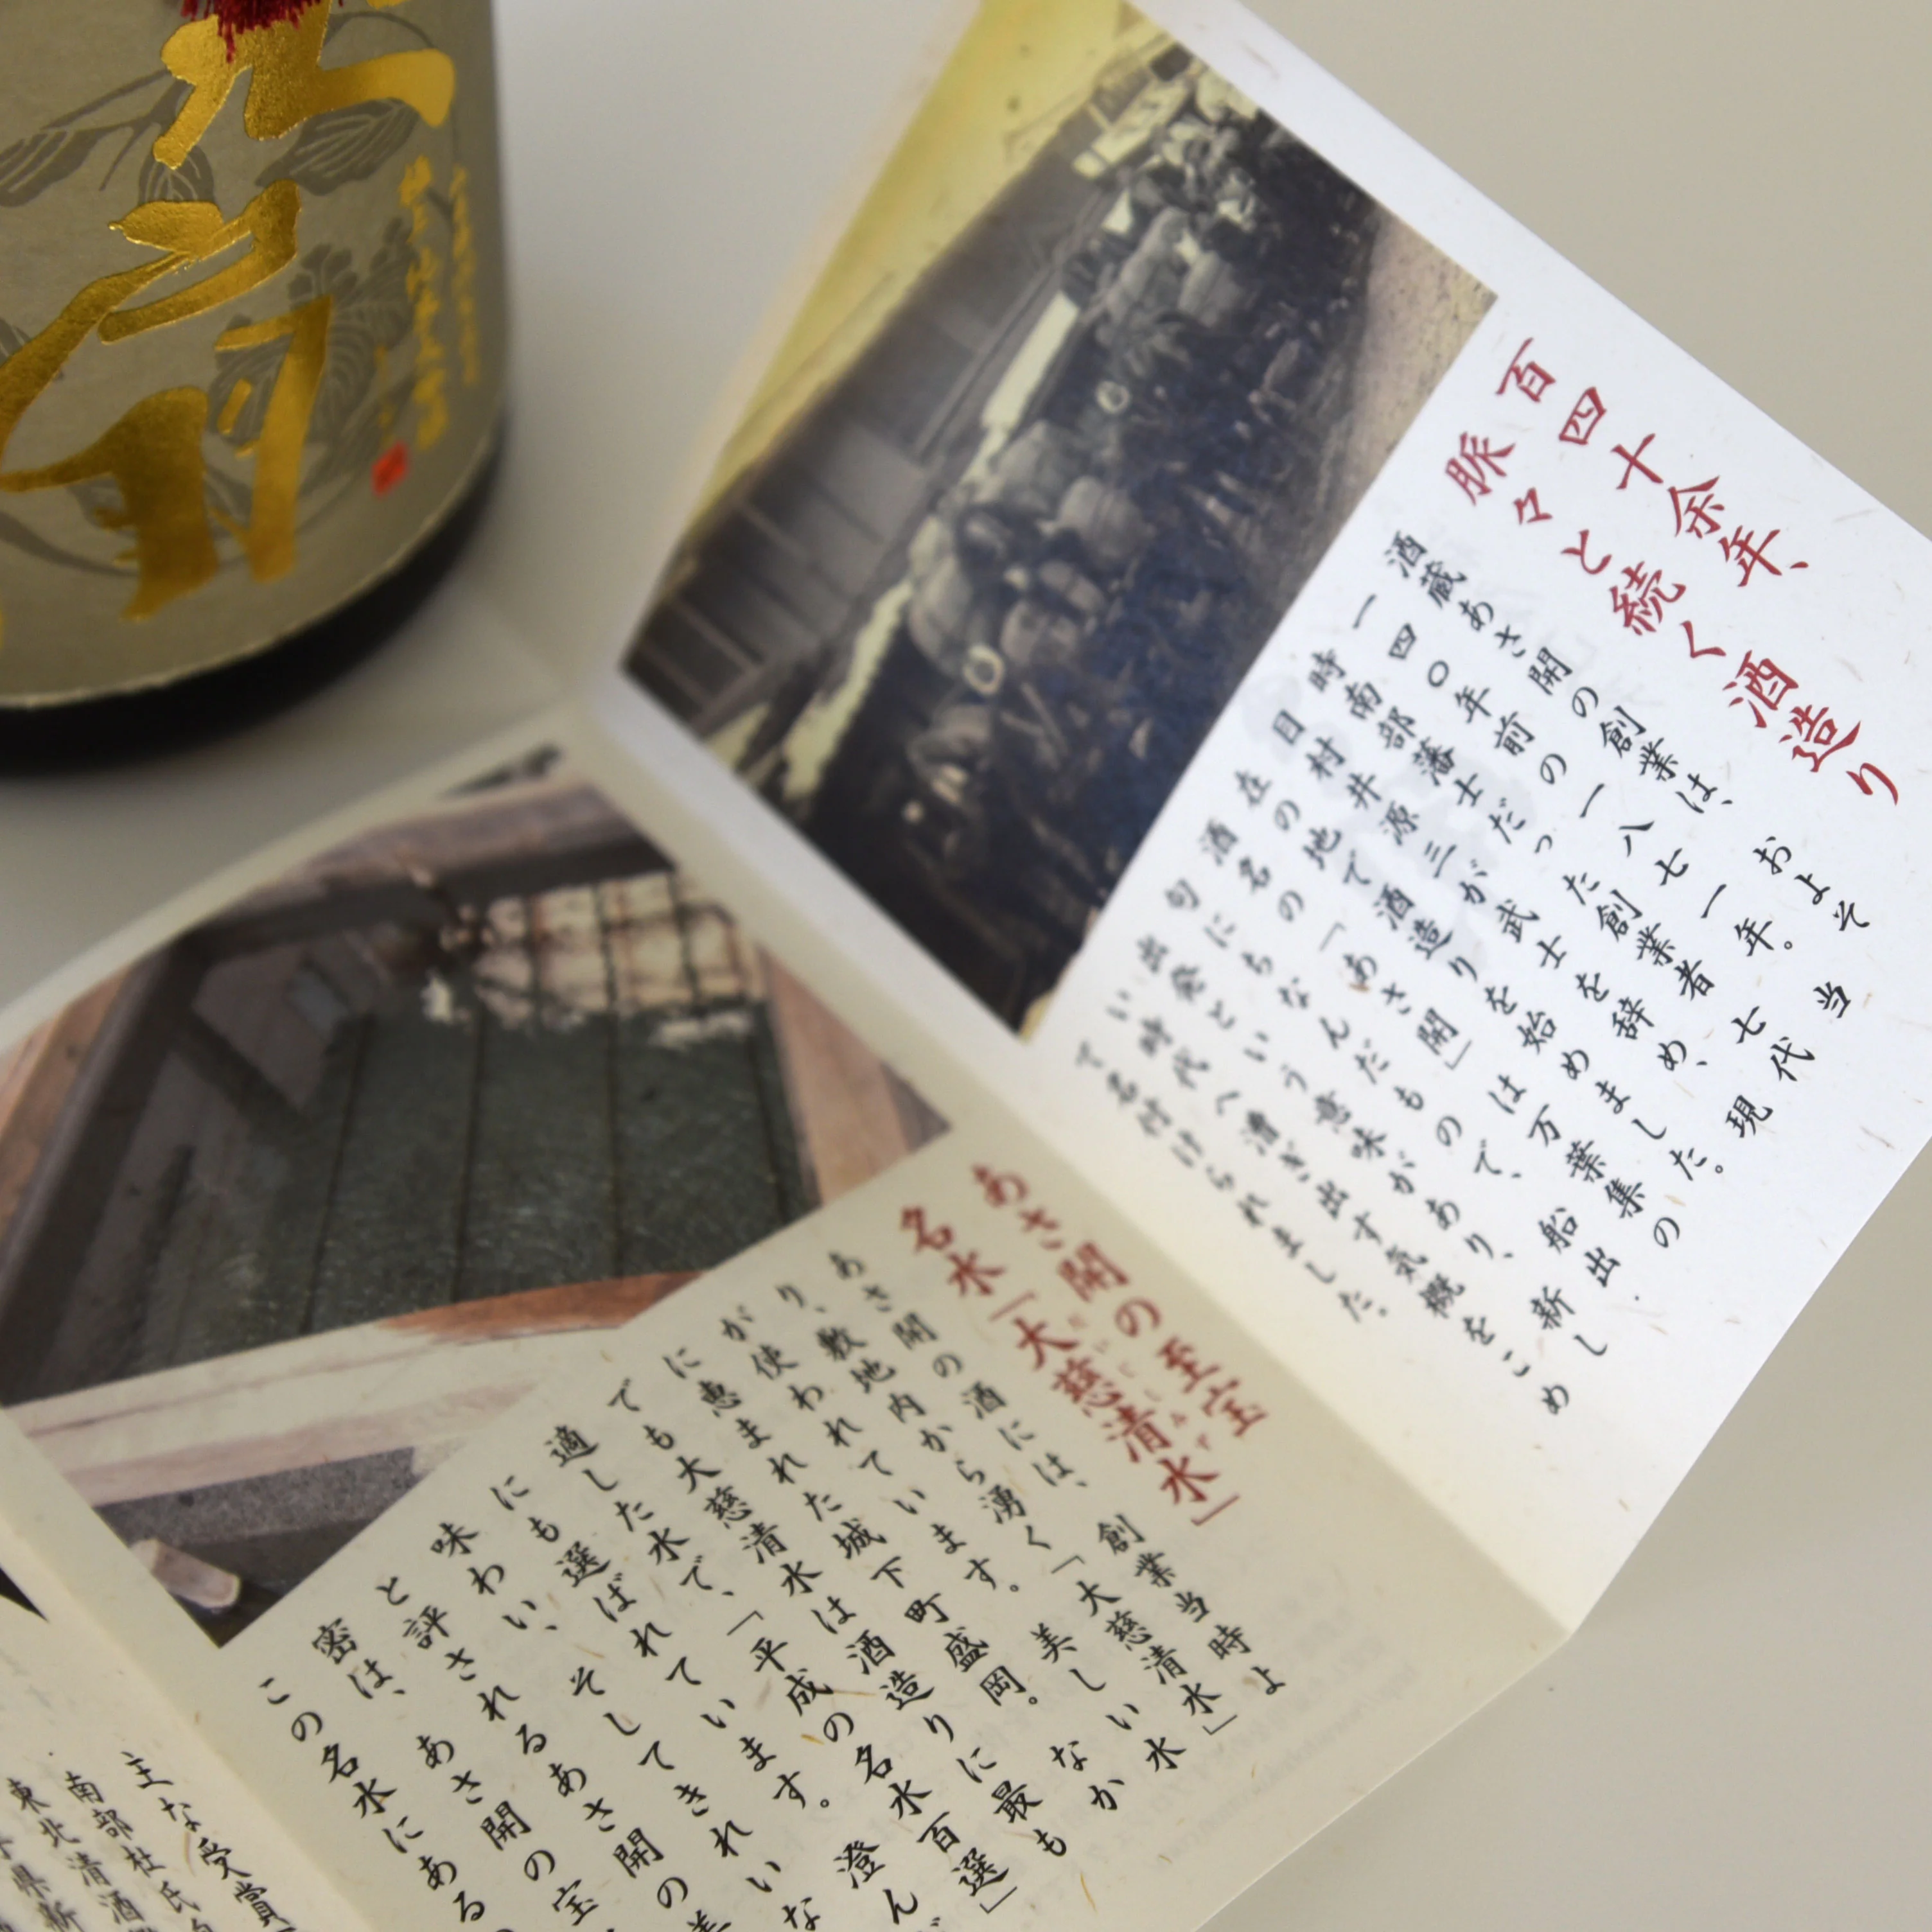 百四十余年、
脈々と続く酒造り
酒蔵あさ開の創業は、およそ
一四〇年前の一八七一年。当
時南部藩士だった創業者 七代
目村井源三が武士を辞め、現
在の地で酒造りを始めました。
酒名の「あさ開」は万葉集の
句にちなんだもので、船出・
出発という意味があり、新し
い時代へ漕ぎ出す気概をこめ
て名付けられました。
あさ開の至宝
名水「大慈清水」
だいじしみず
あさ開の酒には、創業当時よ
り、敷地内から湧く「大慈清水」
が使われています。美しい水
に恵まれた城下町盛岡。なか
でも大慈清水は酒造りに最も
適した水で、「平成の名水百選」
にも選ばれています。澄ん
味わい、そしてきれいな
と評されるあさ開の
密は、あさ開の宝
この名水にある
主な受賞
南部杜氏
東北清酒
県新